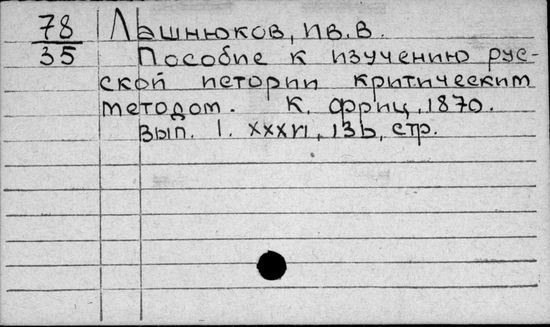 78
35
Лашнюков, Ив. В.
Пособие к изучению рус-
ской истории критическим
методом. К. Фриц, 1870.
Вып. I. XXXVI, 136, стр.